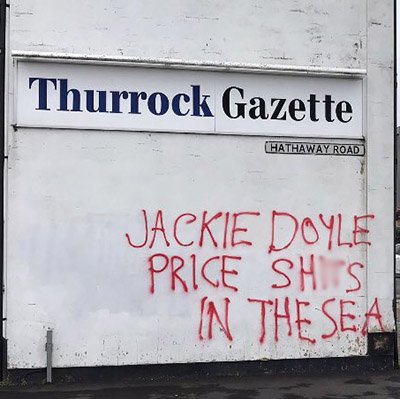 Thurrock Gazette
HATHAWAY ROAD
JACKIE DOYLE
PRICE
IN THE SEA